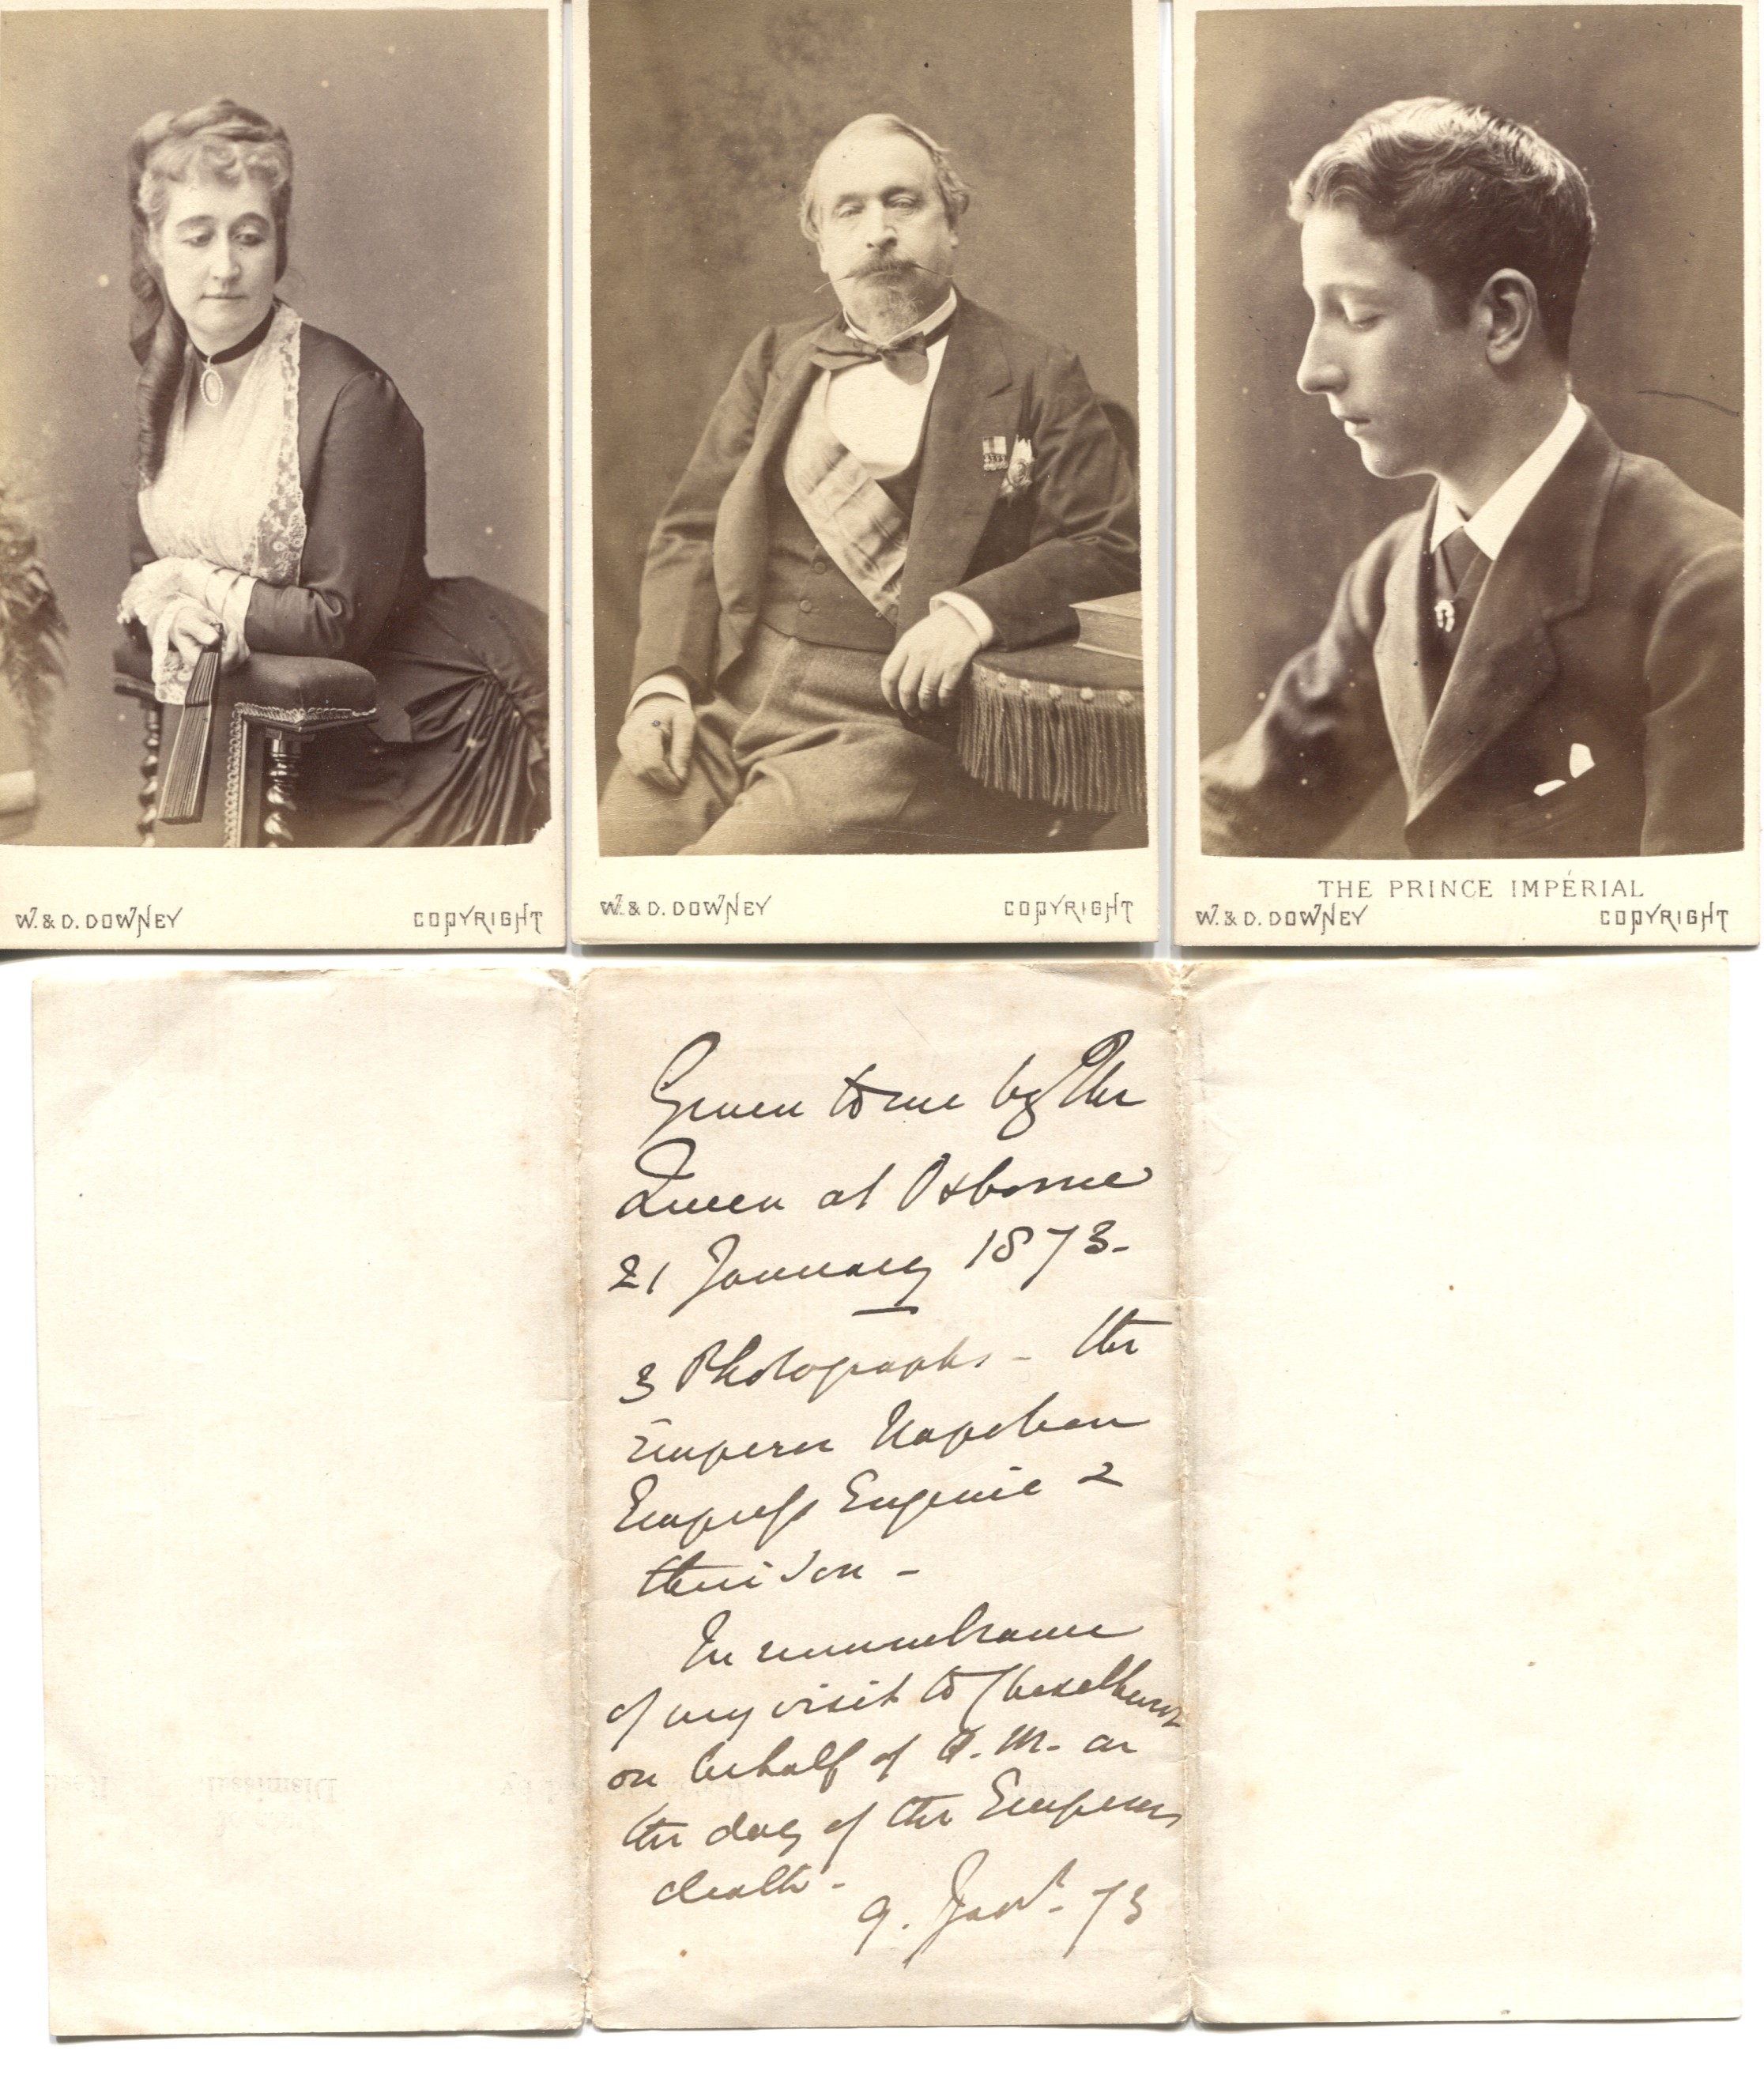 W. & D. DOWNEY COPYRIGHT
W. & D. DOWNEY COPYRIGHT
THE PRINCE IMPÉRIAL
W. & D. DOWNEY COPYRIGHT
Given to me by The
Queen at Osborne
21 January 1873-
3 Photographs - the
Emperor Napoleon
Empress Eugenie &
their Son -
In remembrance
of my visit to Chiselhurst
on behalf of Q. M. on
the day of the Emperors
death -
9. Jany. 73